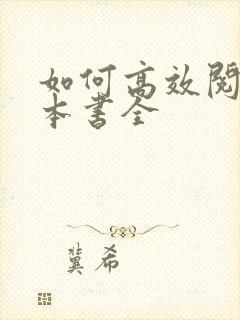 如何高效阅
本书全
冀希